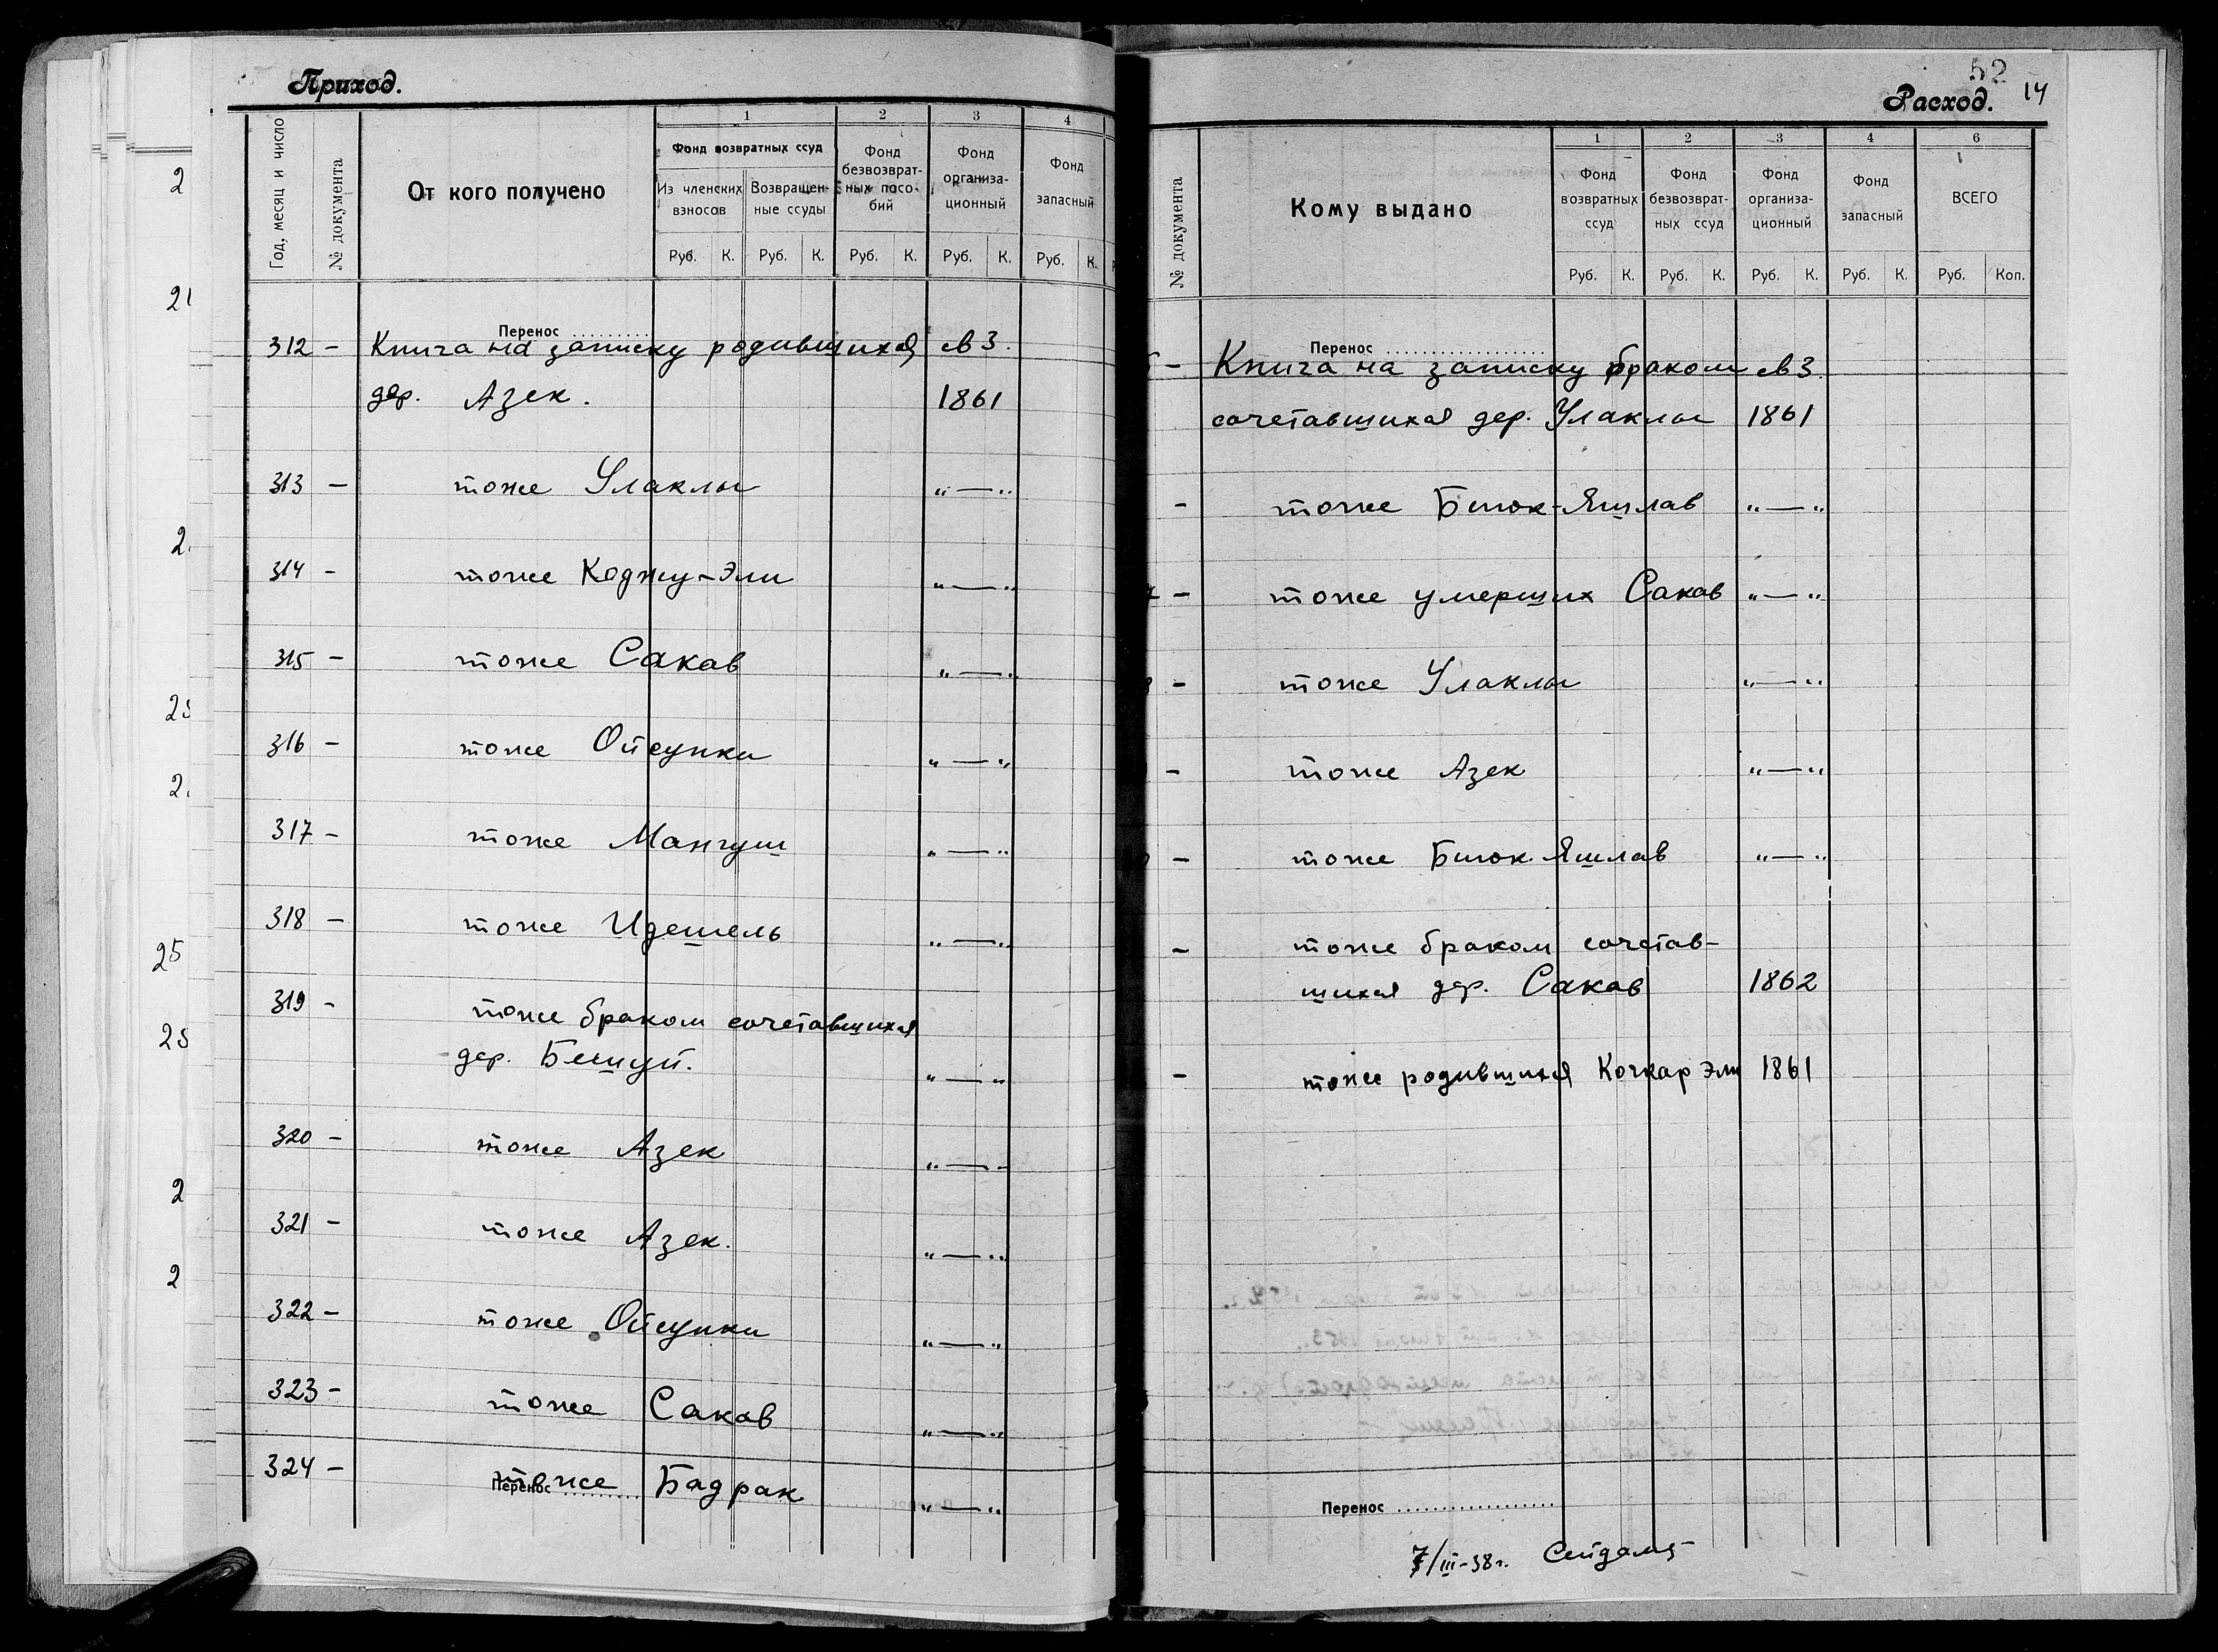 Приход.
Год, месяц и число
№ документа
От кого получено
1
Фонд возвратных ссуд
Из членских взносов
Возвращенные ссуды
2
Фонд безвозвратных пособий
3
Фонд организационный
4
Фонд запасный
Руб. К. Руб. К. Руб. К. Руб. К. Руб. К.
Перенос
312 – Книга на записку родившихся св 3.
дер. Азек. 1861
313 – тоже Улаклы „—„
314 – тоже Коджу-Эли „—„
315 – тоже Сакав „—„
316 – тоже Ойсунки „—„
317 – тоже Мангуш „—„
318 – тоже Идешель „—„
319 – тоже браком сочетавшихся
дер. Бешуй. „—„
320 – тоже Азек „—„
321 – тоже Азек. „—„
322 – тоже Ойсунки „—„
323 – тоже Сакав „—„
324 – тоже Бадрак „—„
Перенос
52
Расход. 14
№ документа
Кому выдано
1
Фонд возвратных ссуд
2
Фонд безвозвратных ссуд
3
Фонд организационный
4
Фонд запасный
6
ВСЕГО
Руб. К. Руб. К. Руб. К. Руб. К. Руб. Коп.
Перенос
– Книга на записку браком св 3.
сочетавшихся дер. Улаклы 1861
– тоже Биюк-Яшлав „—„
– тоже умерших Сакав „—„
– тоже Улаклы „—„
– тоже Азек „—„
– тоже Биюк-Яшлав „—„
– тоже браком сочетав-
шихся дер. Сакав 1862
– тоже родившихся Кочкар Эли 1861
Перенос
7/III-38 г.